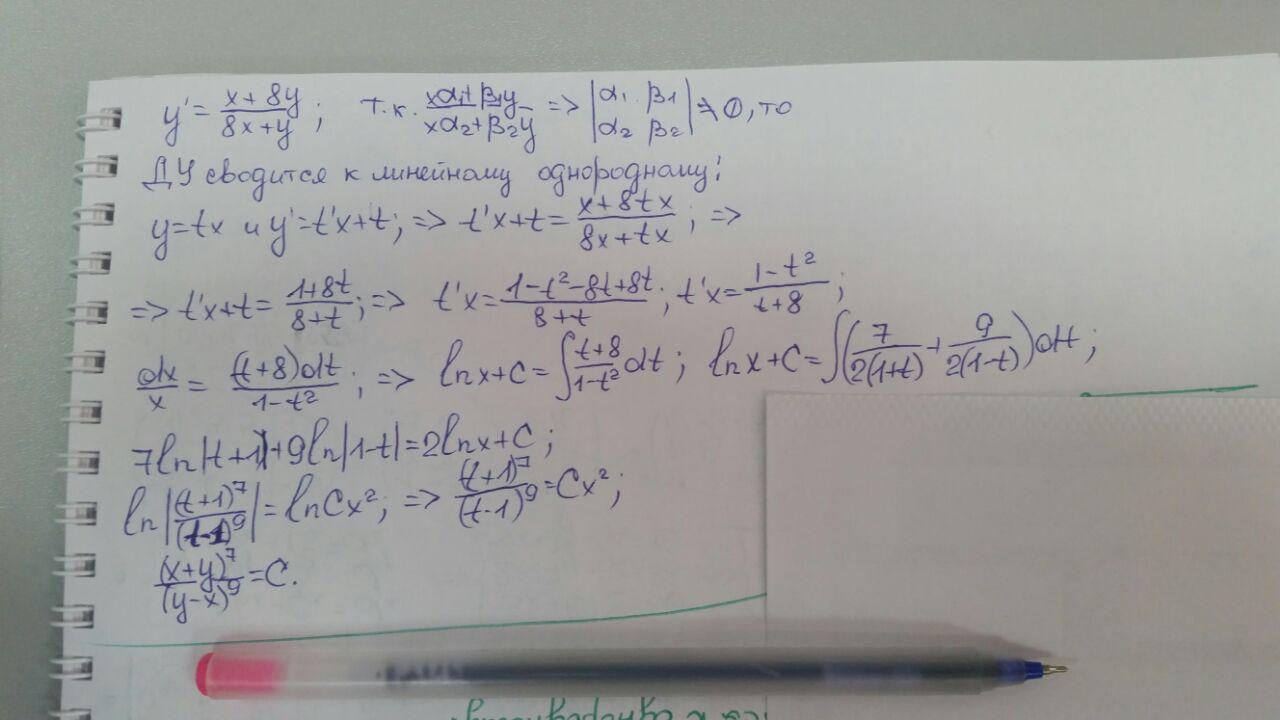 y' = (x+8y)/(8x+y); т.к. (xα₁+β₁y)/(xα₂+β₂y) => |α₁ β₁; α₂ β₂| ≠ 0, то
ДУ сводится к линейному однородному:
y=tx и y'=t'x+t; => t'x+t = (x+8tx)/(8x+tx); =>
=> t'x+t = (1+8t)/(8+t); => t'x = (1-t²-8t+8t)/(8+t); t'x = (1-t²)/(t+8);
dx/x = (t+8)dt/(1-t²); => ln x+C = ∫(t+8)/(1-t²) dt; ln x+C = ∫(7/(2(1+t)) + 9/(2(1-t)))dt;
7ln|t+1|+9ln|1-t|=2lnx+C;
ln|(t+1)⁷/(t-1)⁹| = ln Cx²; => (t+1)⁷/(t-1)⁹ = Cx²;
(x+y)⁷/(y-x)⁹ = C.